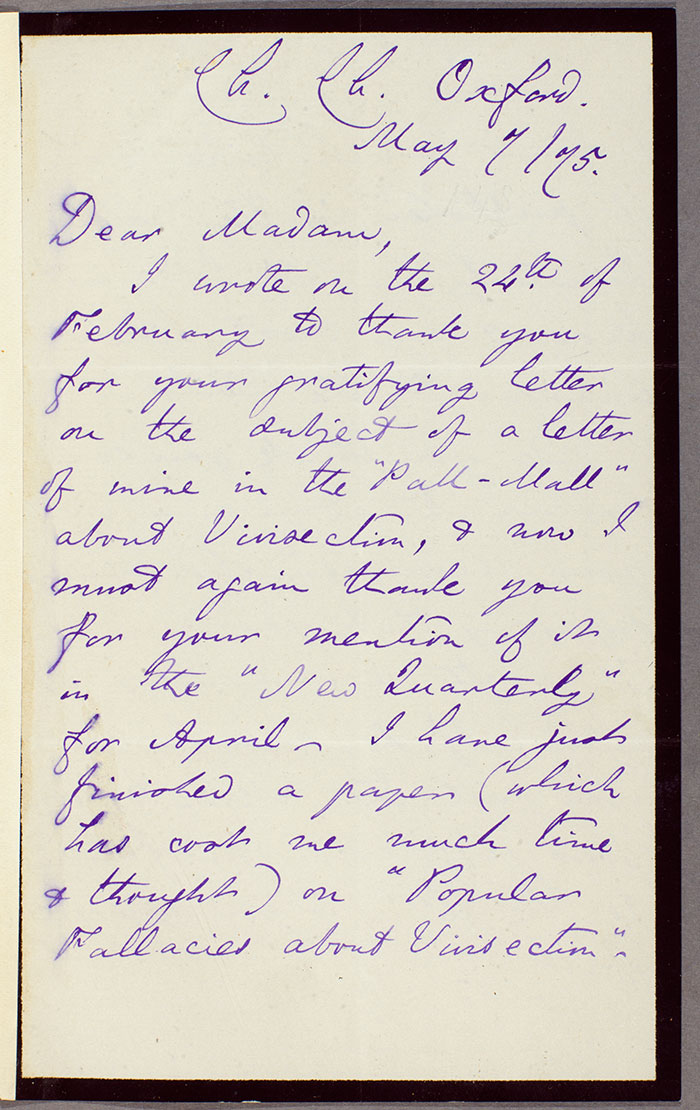 Ch. Ch. Oxford.
May 7/75.
Dear Madam,
I wrote on the 24th. of
February to thank you
for your gratifying letter
on the subject of a letter
of mine in the "Pall-Mall"
about Vivisection, & now I
must again thank you
for your mention of it
in the "New Quarterly"
for April – I have just
finished a paper (which
has cost me much time
& thought) on "Popular
Fallacies about Vivisection".